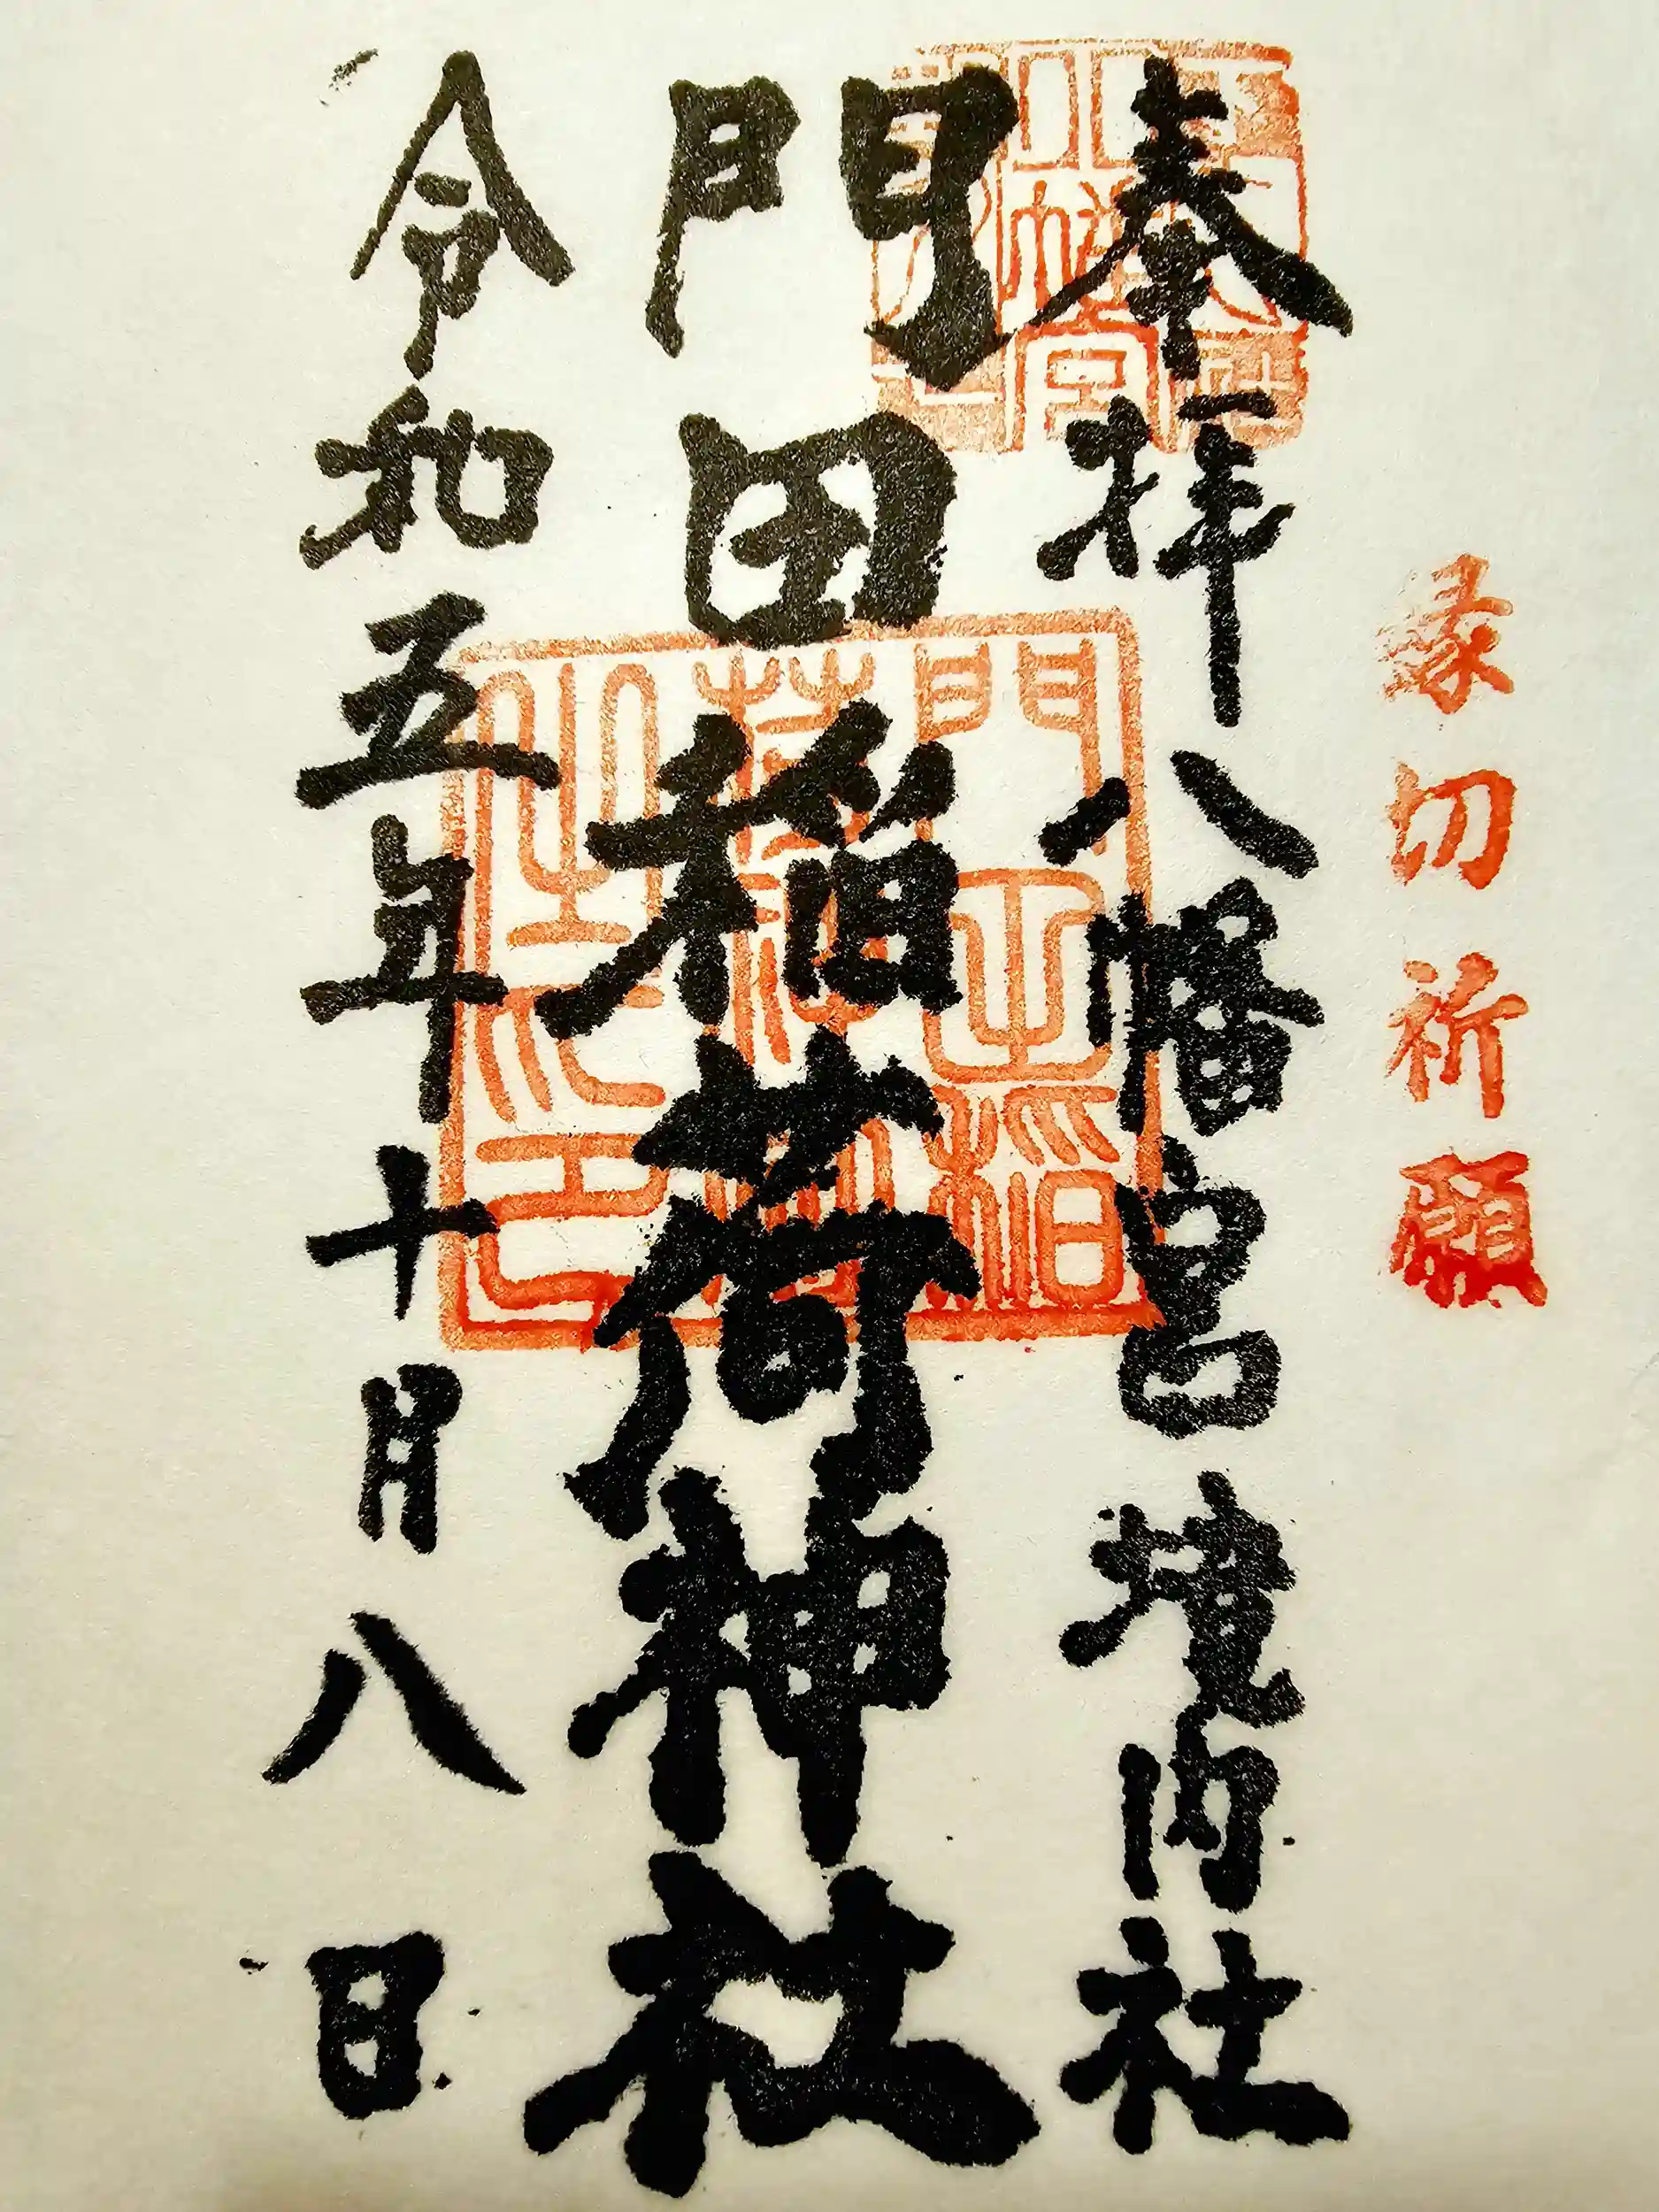 縁切祈願
奉拝八幡宮境内社
門田稲荷神社
令和五年十月八日
門田稲荷神社之印